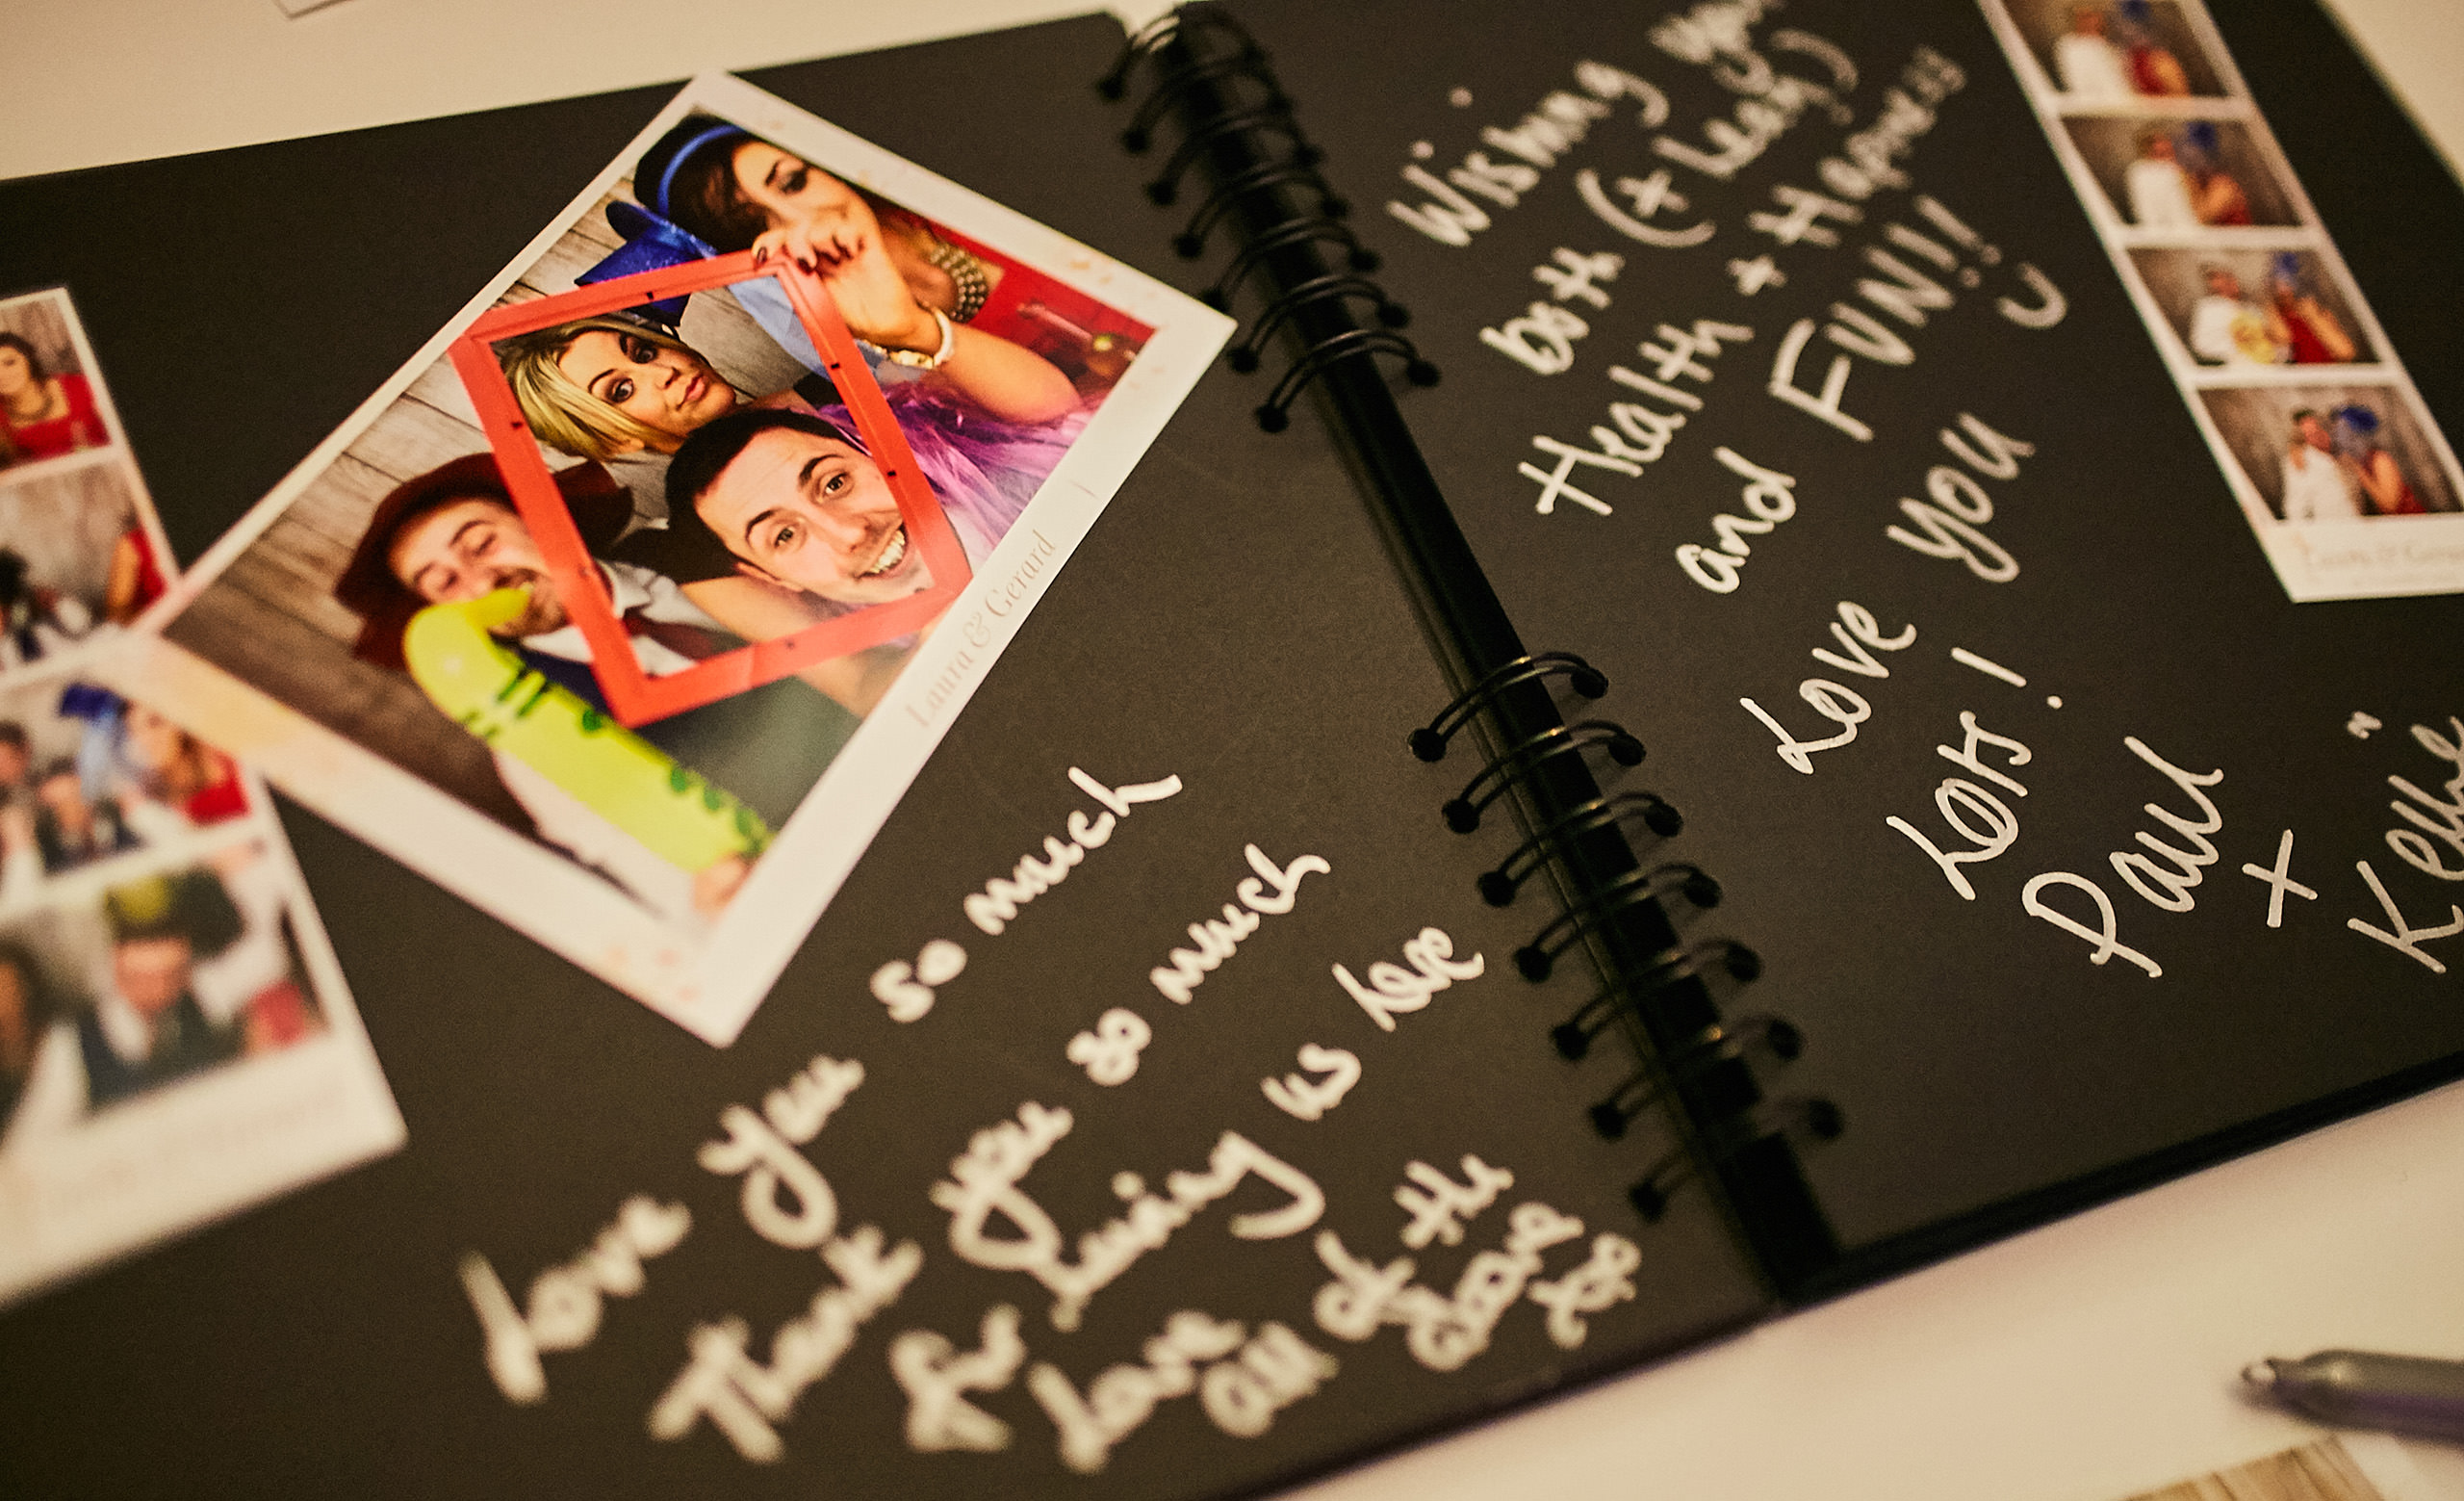 Laura & Gerard
Love you so much
Thank you so much
for having us here
Love
all of the
Wishing you
both (+ Leah)
Health + Happiness
and FUN!!
Love you
Lots!
Paul
x
"Kellie